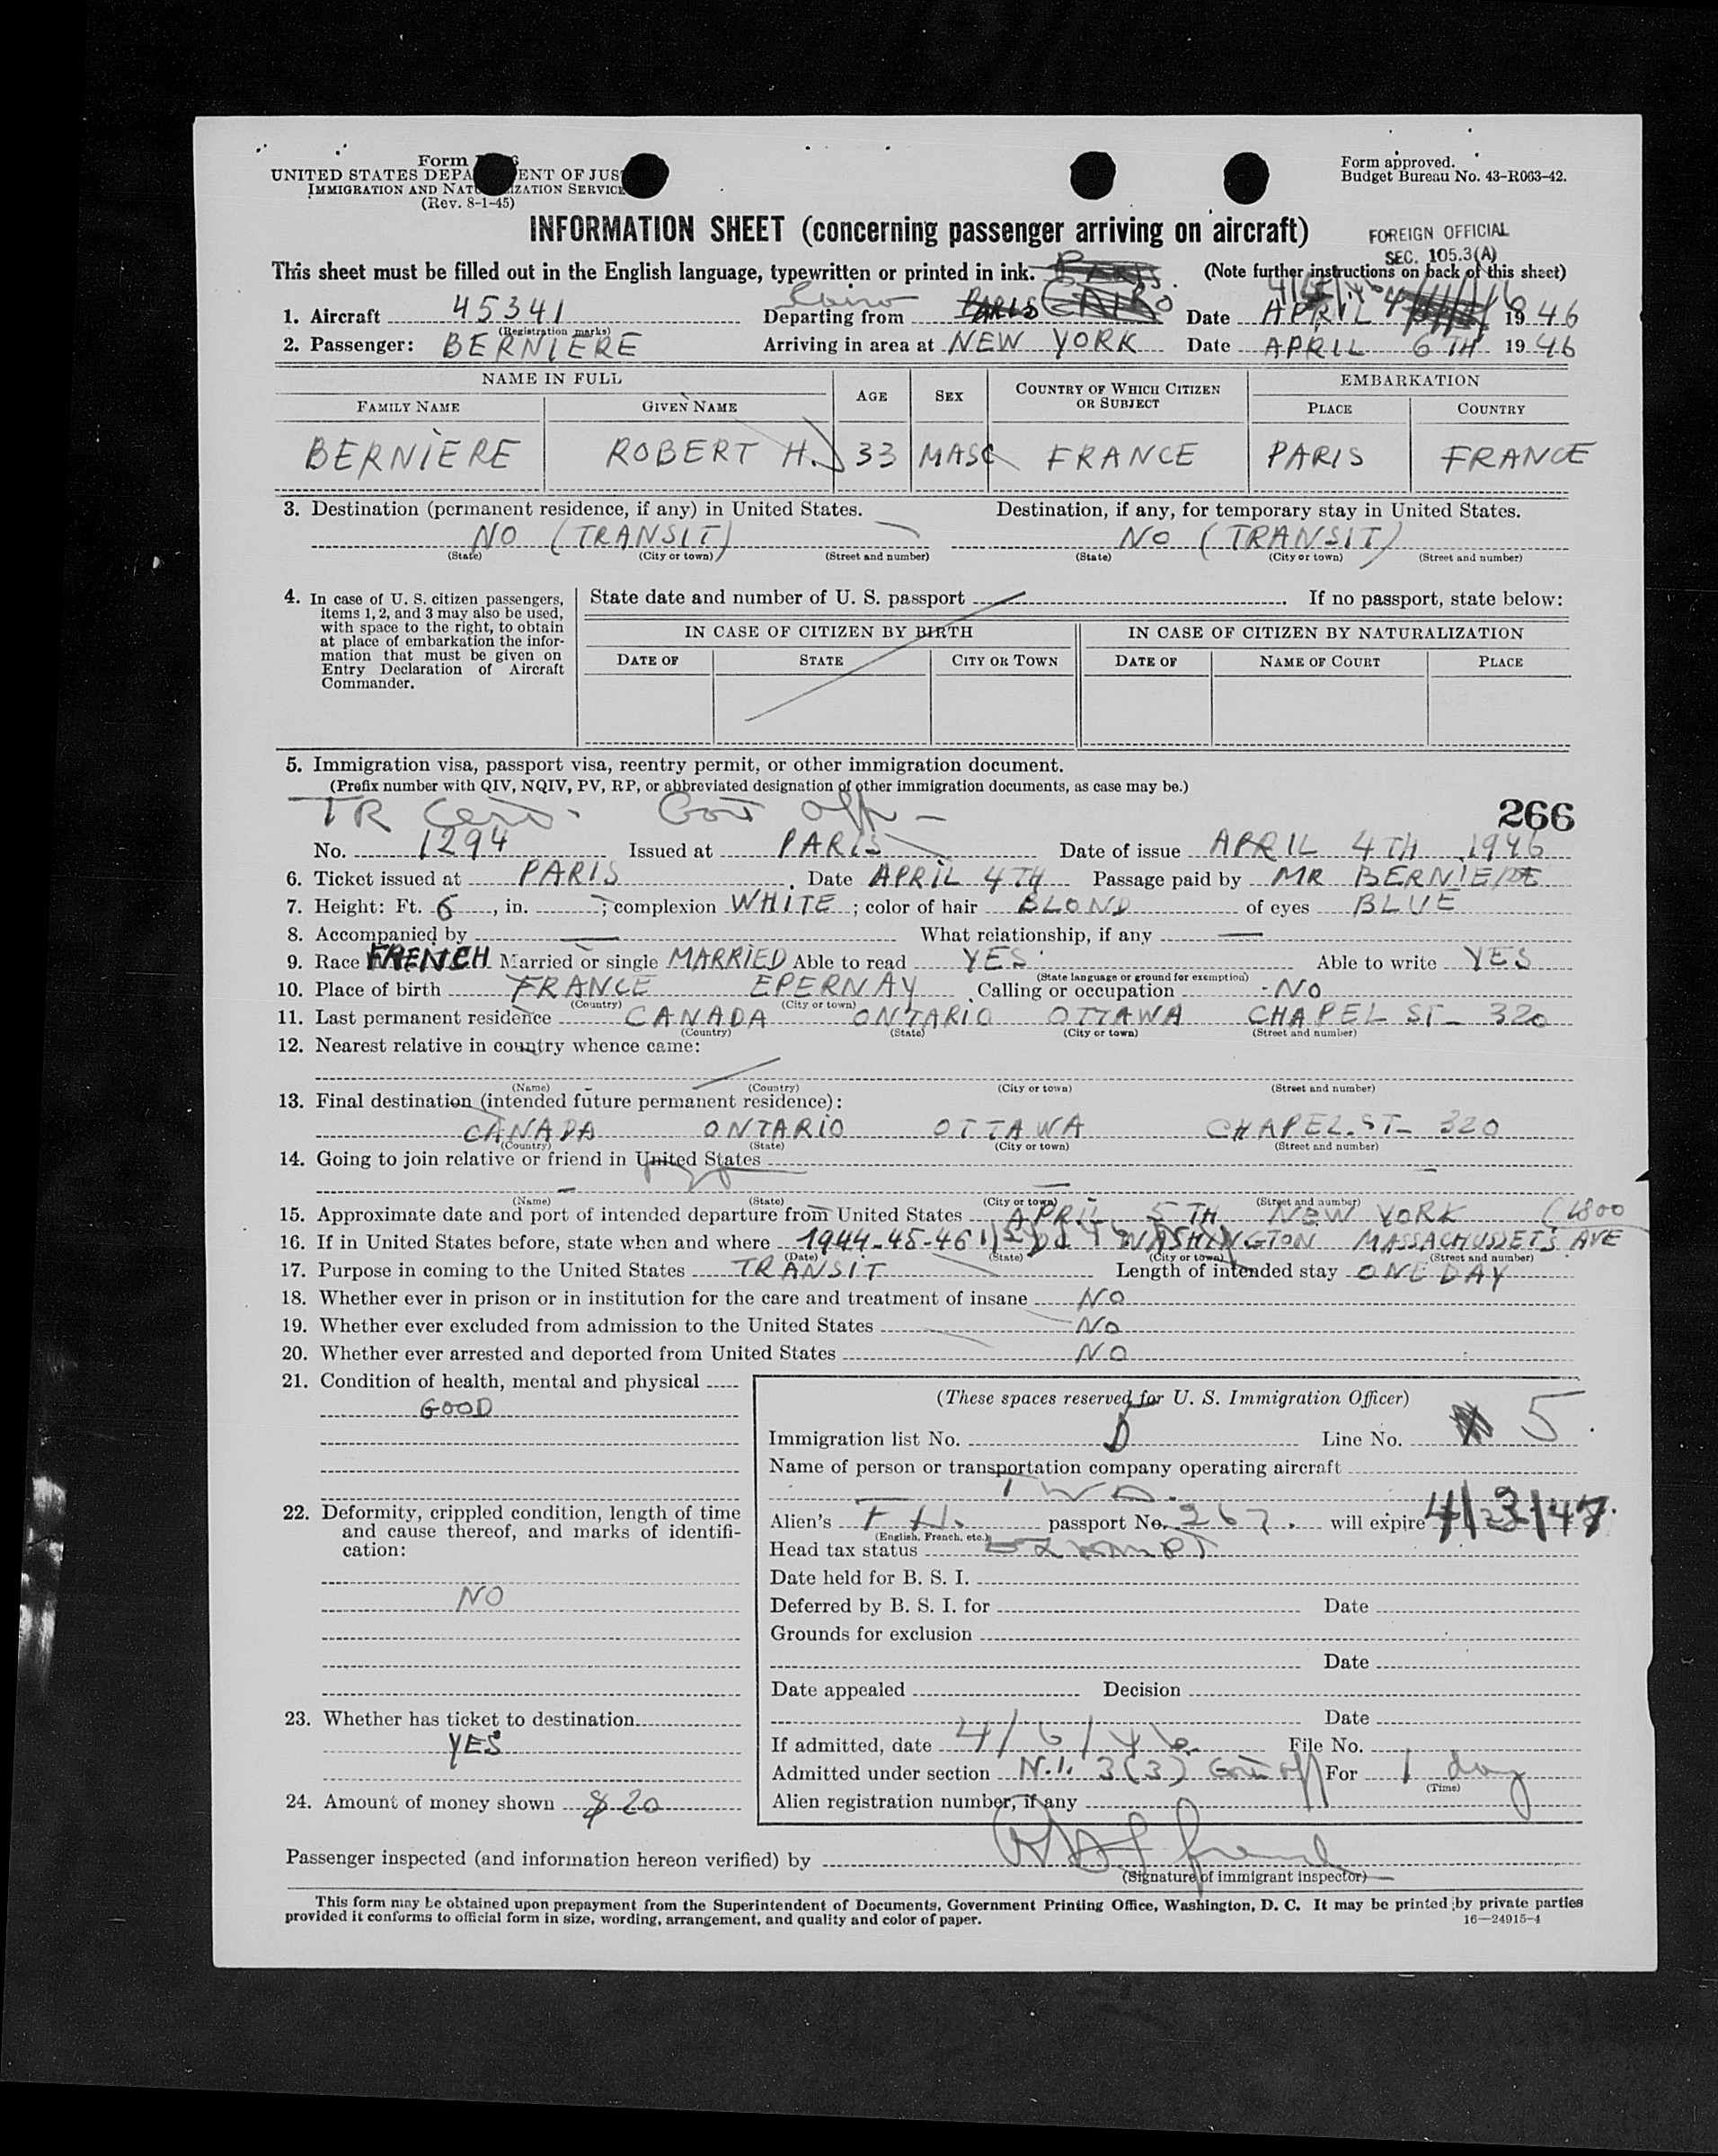 Form
UNITED STATES DEPA ENT OF JUS
IMMIGRATION AND NAT IZATION SERVICE
(Rev. 8-1-45)
Form approved.
Budget Bureau No. 43-R063-42.
INFORMATION SHEET (concerning passenger arriving on aircraft)
FOREIGN OFFICIAL
SEC. 105.3(A)
This sheet must be filled out in the English language, typewritten or printed in ink. PARIS (Note further instructions on back of this sheet)
Cairo
1. Aircraft 45341 Departing from PARIS CAIRO Date APRIL 1946
(Registration marks)
2. Passenger: BERNIERE Arriving in area at NEW YORK Date APRIL 6TH 1946
NAME IN FULL AGE SEX COUNTRY OF WHICH CITIZEN OR SUBJECT EMBARKATION
FAMILY NAME GIVEN NAME PLACE COUNTRY
BERNIERE ROBERT H. 33 MASC FRANCE PARIS FRANCE
3. Destination (permanent residence, if any) in United States. Destination, if any, for temporary stay in United States.
NO (TRANSIT) NO (TRANSIT)
(State) (City or town) (Street and number) (State) (City or town) (Street and number)
4. In case of U. S. citizen passengers, items 1, 2, and 3 may also be used, with space to the right, to obtain at place of embarkation the information that must be given on Entry Declaration of Aircraft Commander.
State date and number of U. S. passport . If no passport, state below:
IN CASE OF CITIZEN BY BIRTH IN CASE OF CITIZEN BY NATURALIZATION
DATE OF STATE CITY OR TOWN DATE OF NAME OF COURT PLACE
5. Immigration visa, passport visa, reentry permit, or other immigration document.
(Prefix number with QIV, NQIV, PV, RP, or abbreviated designation of other immigration documents, as case may be.)
TR Cert. Govt Off - 266
No. 1294 Issued at PARIS Date of issue APRIL 4TH 1946
6. Ticket issued at PARIS Date APRIL 4TH Passage paid by MR BERNIERE
7. Height: Ft. 6, in. ; complexion WHITE; color of hair BLOND of eyes BLUE
8. Accompanied by — What relationship, if any —
9. Race FRENCH Married or single MARRIED Able to read YES Able to write YES
(State language or ground for exemption)
10. Place of birth FRANCE EPERNAY Calling or occupation - NO
(Country) (City or town)
11. Last permanent residence CANADA ONTARIO OTTAWA CHAPEL ST- 320
(Country) (State) (City or town) (Street and number)
12. Nearest relative in country whence came:
(Name) (Country) (City or town) (Street and number)
13. Final destination (intended future permanent residence):
CANADA ONTARIO OTTAWA CHAPEL.ST- 320
(Country) (State) (City or town) (Street and number)
14. Going to join relative or friend in United States
(Name) (State) (City or town) (Street and number)
15. Approximate date and port of intended departure from United States APRIL 5TH NEW YORK (1800
16. If in United States before, state when and where 1944-45-46 WASHINGTON MASSACHUSSETS AVE
(Date) (State) (City or town) (Street and number)
17. Purpose in coming to the United States TRANSIT Length of intended stay ONE DAY
18. Whether ever in prison or in institution for the care and treatment of insane NO
19. Whether ever excluded from admission to the United States NO
20. Whether ever arrested and deported from United States NO
21. Condition of health, mental and physical
GOOD
22. Deformity, crippled condition, length of time and cause thereof, and marks of identification:
NO
23. Whether has ticket to destination
YES
24. Amount of money shown $ 20
(These spaces reserved for U. S. Immigration Officer)
Immigration list No. D Line No. 5
Name of person or transportation company operating aircraft
TWA.
Alien's passport No. 267. will expire 4/23/47.
(English, French, etc.)
Head tax status Exempt
Date held for B. S. I.
Deferred by B. S. I. for Date
Grounds for exclusion
Date
Date appealed Decision
Date
If admitted, date 4/6/46 File No.
Admitted under section N.I. 3(3) Govt off For 1 day
(Time)
Alien registration number, if any
Passenger inspected (and information hereon verified) by
(Signature of immigrant inspector)
This form may be obtained upon prepayment from the Superintendent of Documents, Government Printing Office, Washington, D. C. It may be printed by private parties
provided it conforms to official form in size, wording, arrangement, and quality and color of paper. 16—24915-4